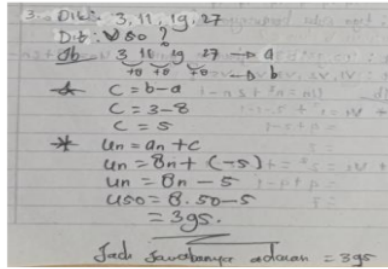 3. Dik: 3, 11, 19, 27
Dit: U50 ?
Jb 3 11 19 27 → a
+8 +8 +8 → b
* C = b-a
C = 3-8
C = 5
* Un = an + c
Un = 8n + (-5)
Un = 8n - 5
U50 = 8.50-5
= 395.
Jadi Jawabannya adalah = 395